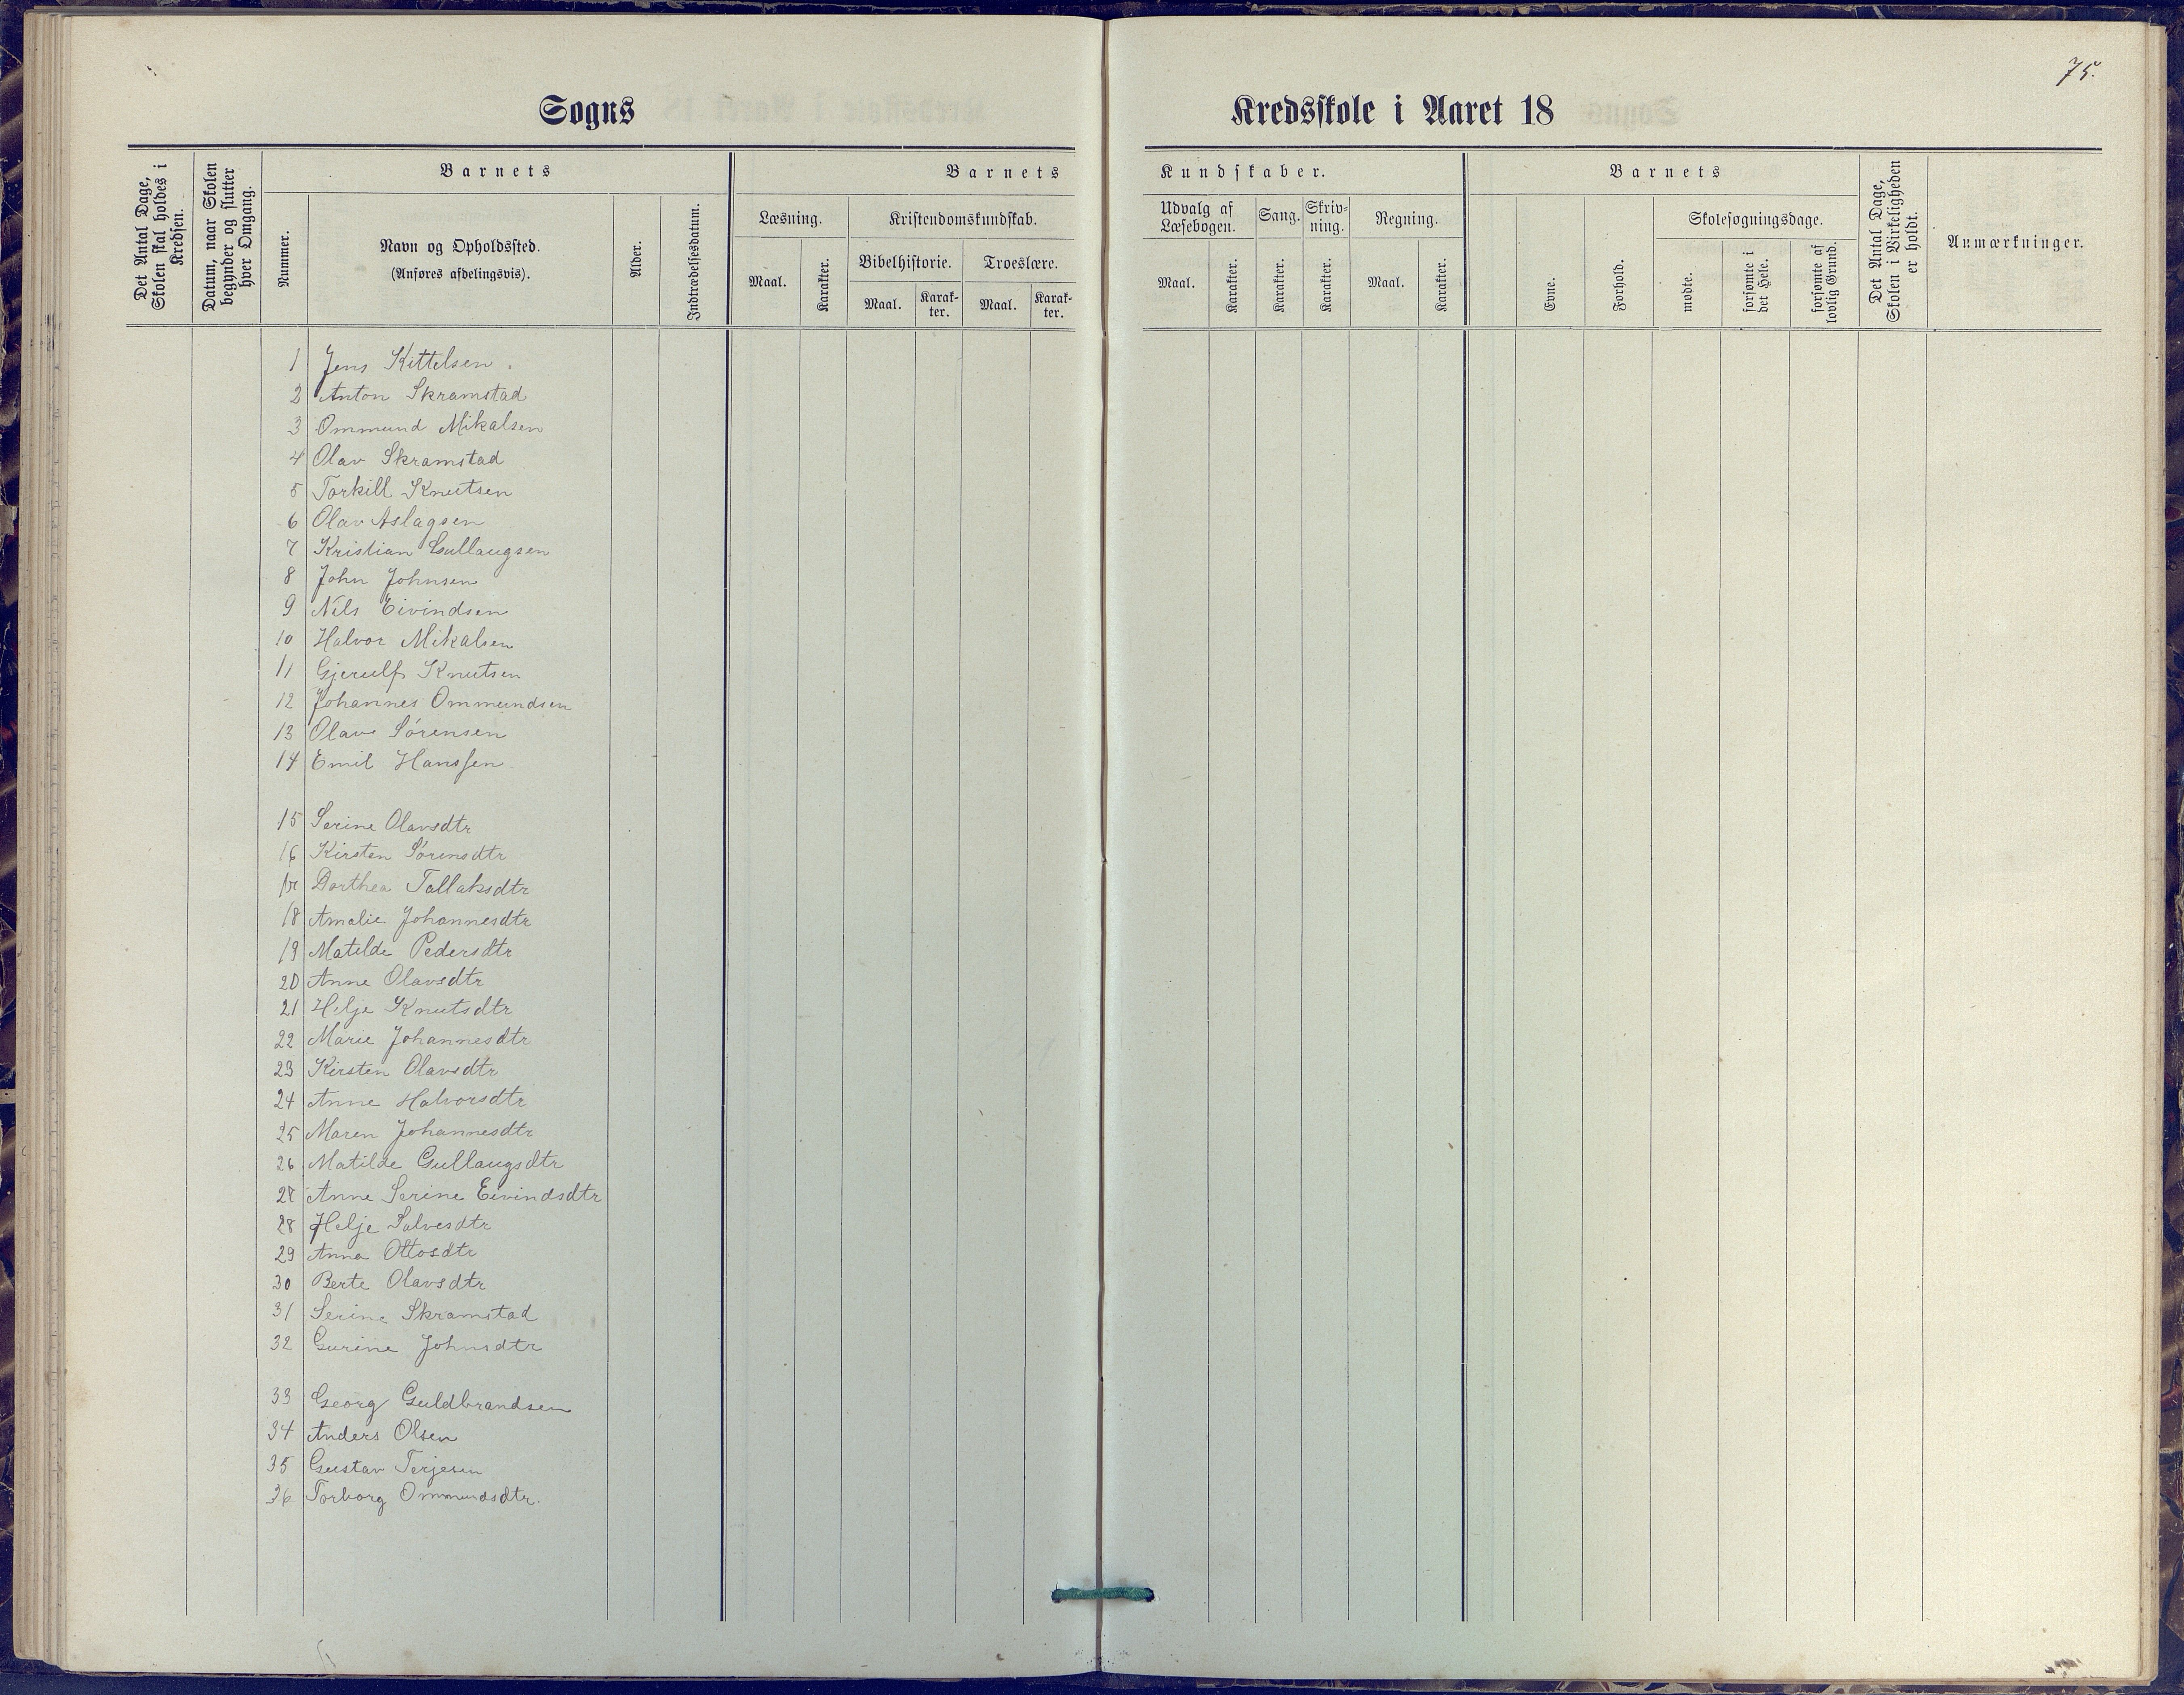 75.
Sogns
Kredsskole i Aaret 18
Det Antal Dage, Skolen skal holdes i Kredsen.
Datum, naar Skolen begynder og slutter hver Omgang.
Barnets
Nummer.
Navn og Opholdssted.
(Anføres afdelingsvis).
Alder.
Indtrædelsesdatum.
Barnets
Læsning.
Maal.
Karakter.
Kristendomskundskab.
Bibelhistorie.
Maal.
Karak-
ter.
Troeslære.
Maal.
Karak-
ter.
Kundskaber.
Udvalg af
Læsebogen.
Maal.
Karakter.
Sang.
Karakter.
Skriv-
ning.
Karakter.
Regning.
Maal.
Karakter.
Barnets
Evne.
Forhold.
Skolesøgningsdage.
mødte.
forsømte i
det Hele.
forsømte af
lovlig Grund.
Det Antal Dage,
Skolen i Virkeligheden
er holdt.
Anmærkninger.
1 Jens Kittelsen.
2 Anton Skramstad
3 Ommund Mikalsen
4 Olav Skramstad
5 Torkill Knutsen
6 Olav Aslagsen
7 Kristian Gullaugsen
8 John Johnsen
9 Nils Eivindsen
10 Halvor Mikalsen
11 Gjerulf Knutsen
12 Johannes Ommundsen
13 Olav Sørensen
14 Emil Hanssen
15 Serine Olavsdtr
16 Kirsten Sørensdtr
17 Dorthea Tallaksdtr
18 Amalie Johannesdtr
19 Matilde Pedersdtr
20 Anne Olavsdtr
21 Helje Knutsdtr
22 Marie Johannesdtr
23 Kirsten Olavsdtr
24 Anne Halvorsdtr
25 Maren Johannesdtr
26 Matilde Gullaugsdtr
27 Anne Serine Eivindsdtr
28 Helje Salvesdtr
29 Anna Ottosdtr
30 Berte Olavsdtr
31 Serine Skramstad
32 Gurine Johnsdtr
33 Georg Guldbrandsen
34 Anders Olsen
35 Gustav Terjesen
36 Torborg Ommundsdtr.